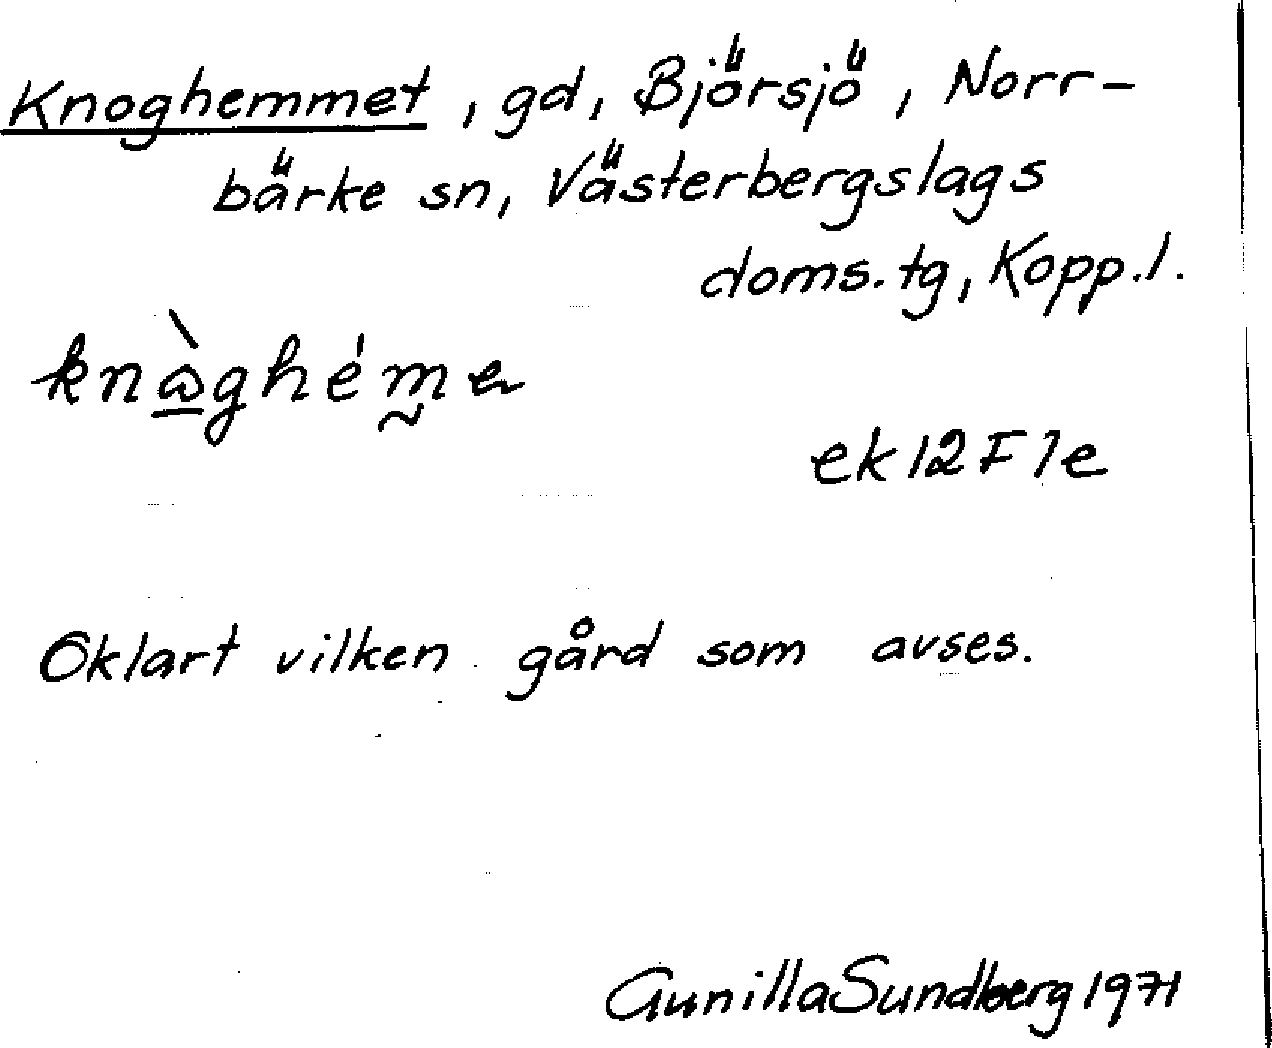 Knoghemmet, gd, Björsjö, Norr-
bärke sn, Västerbergslags
doms.tg, Kopp.l.
ek 12 F 7e
Oklart vilken gård som avses.
Gunilla Sundberg 1971